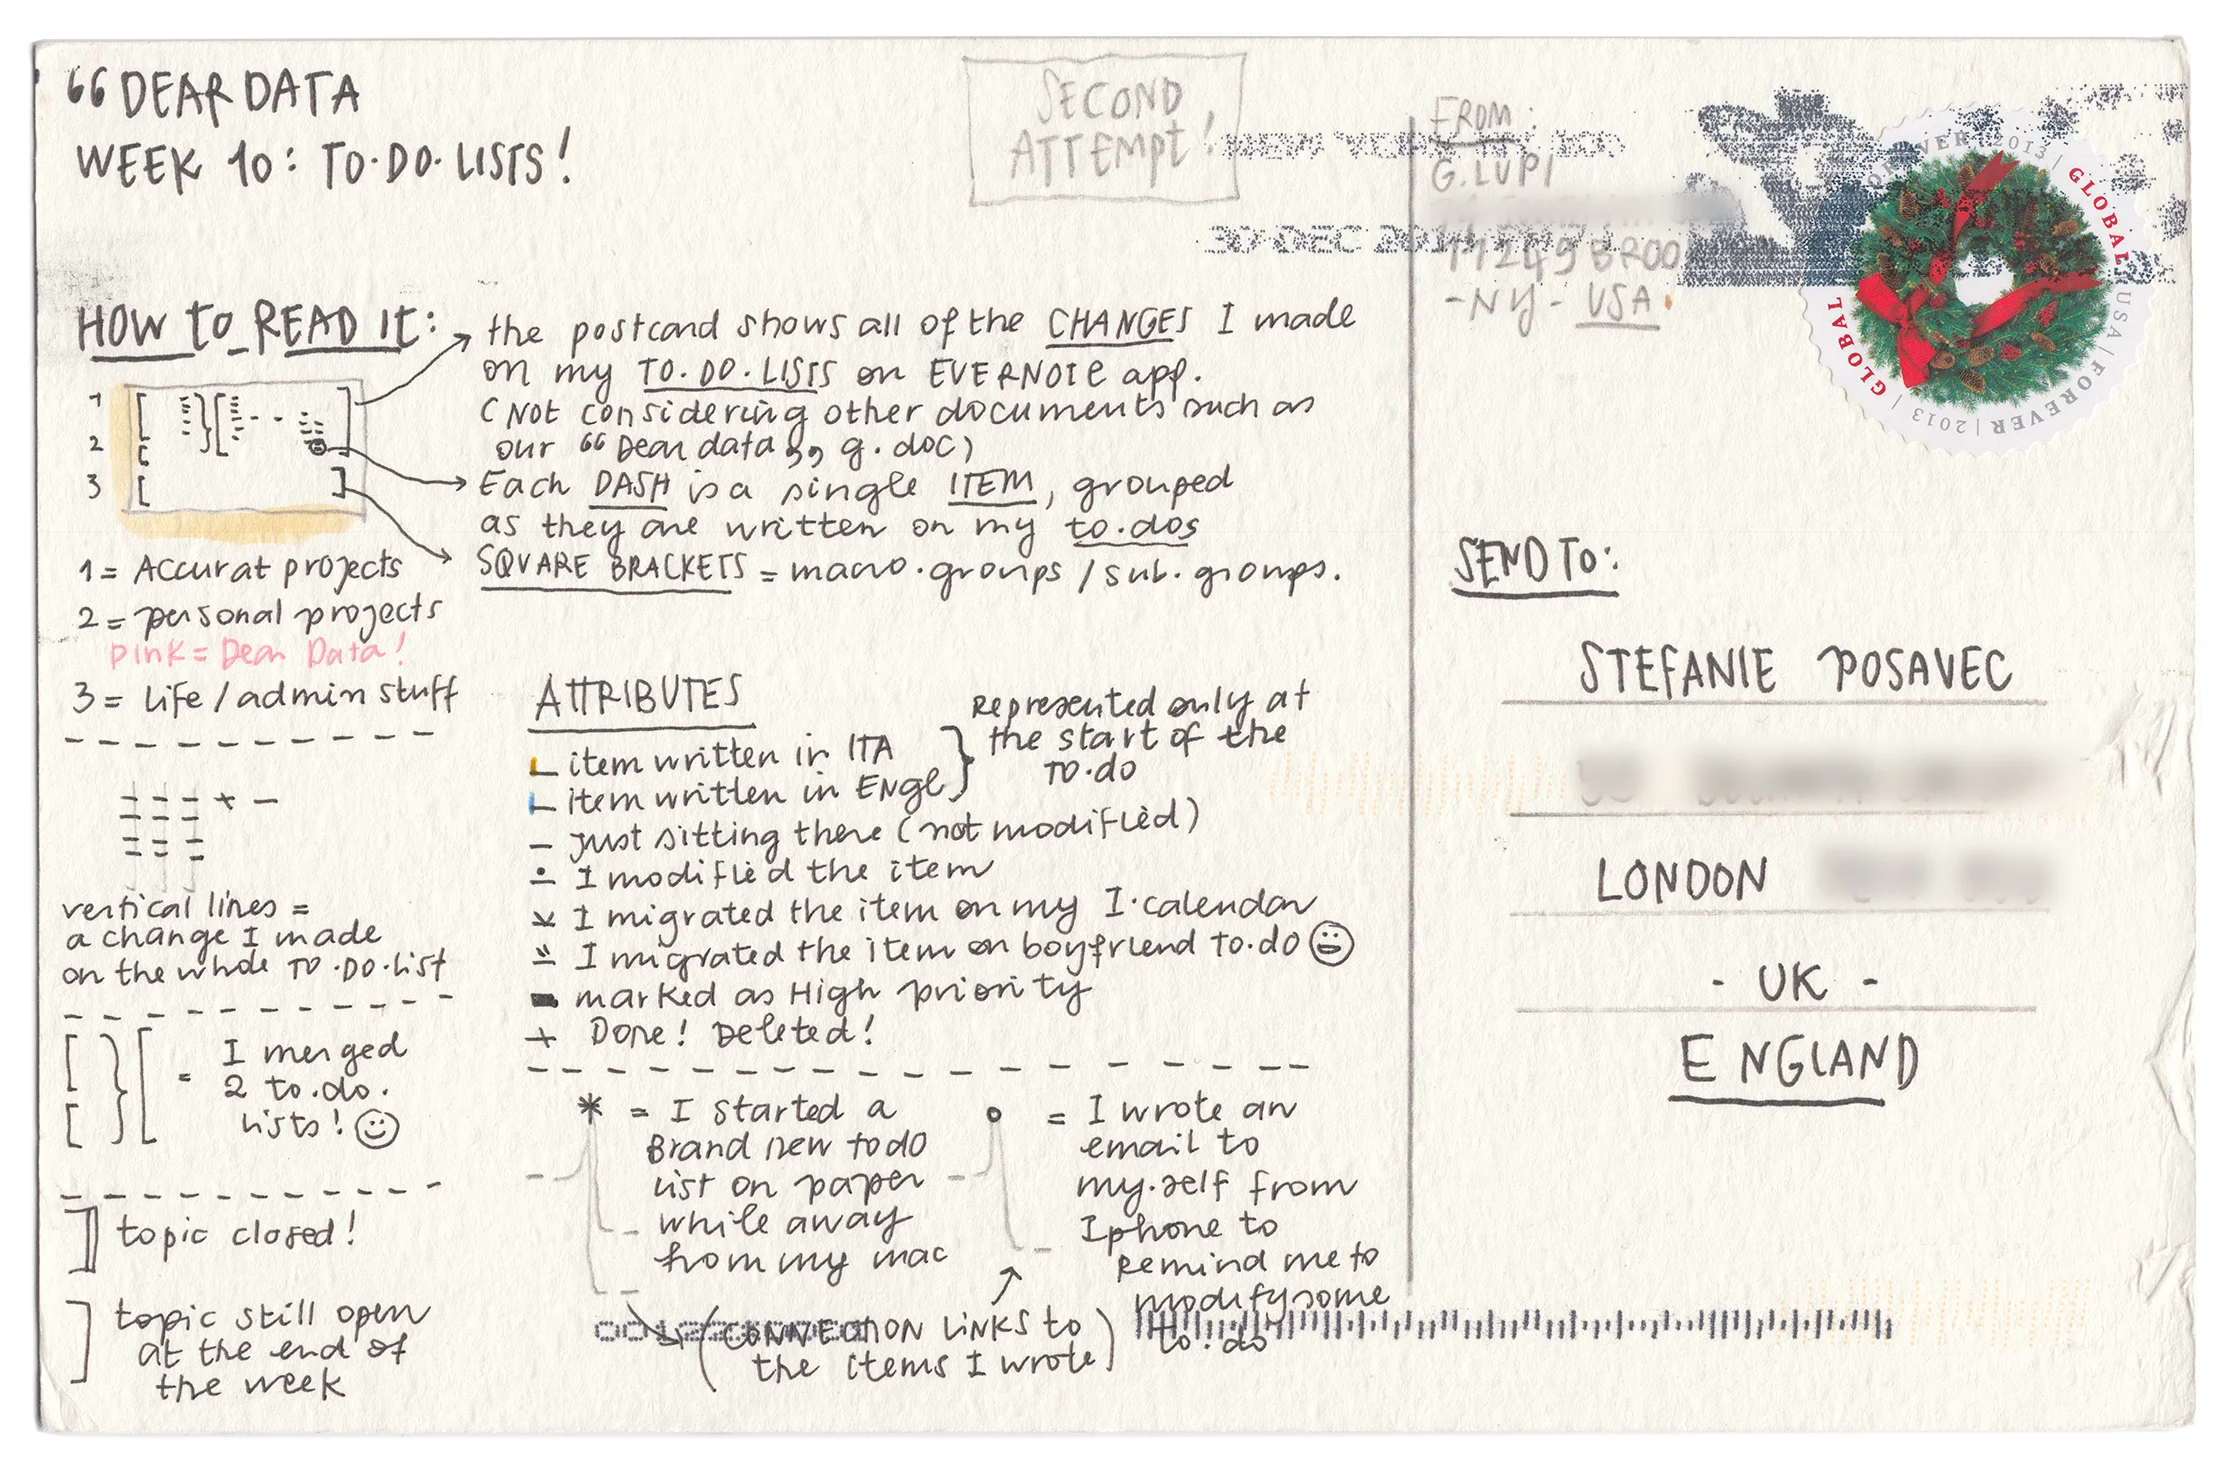 “ DEAR DATA
WEEK 10: TO·DO·LISTS!
SECOND
ATTEMPT!
30 DEC
FROM:
G. LUPI
11249 BROO
-NY- USA
FOREVER 2013 | GLOBAL USA | FOREVER | 2013 | GLOBAL
HOW to READ It:
the postcard shows all of the CHANGES I made
on my TO·DO·LISTS on EVERNOTE app.
(NOT considering other documents such as
our “ Dear data ,, g.doc)
1
2
3
Each DASH is a single ITEM, grouped
as they are written on my to·dos
SQUARE BRACKETS = macro·groups / sub·groups.
1 = Accurat projects
2 = personal projects
PINK = Dear Data!
3 = life / admin stuff
vertical lines =
a change I made
on the whole TO·DO·list
= I merged
2 to·do·
lists!
topic closed!
topic still open
at the end of
the week
ATTRIBUTES
item written in ITA
item written in ENGL
Represented only at
the start of the
TO·do
just sitting there (not modified)
I modified the item
I migrated the item on my I·calendar
I migrated the item on boyfriend to·do
marked as High priority
Done! Deleted!
* = I started a
Brand new to do
list on paper
while away
from my mac
= I wrote an
email to
my·self from
Iphone to
remind me to
modify some
to·do
(CONNECTION LINKS to
the items I wrote)
SEND TO:
STEFANIE POSAVEC
LONDON
- UK -
ENGLAND